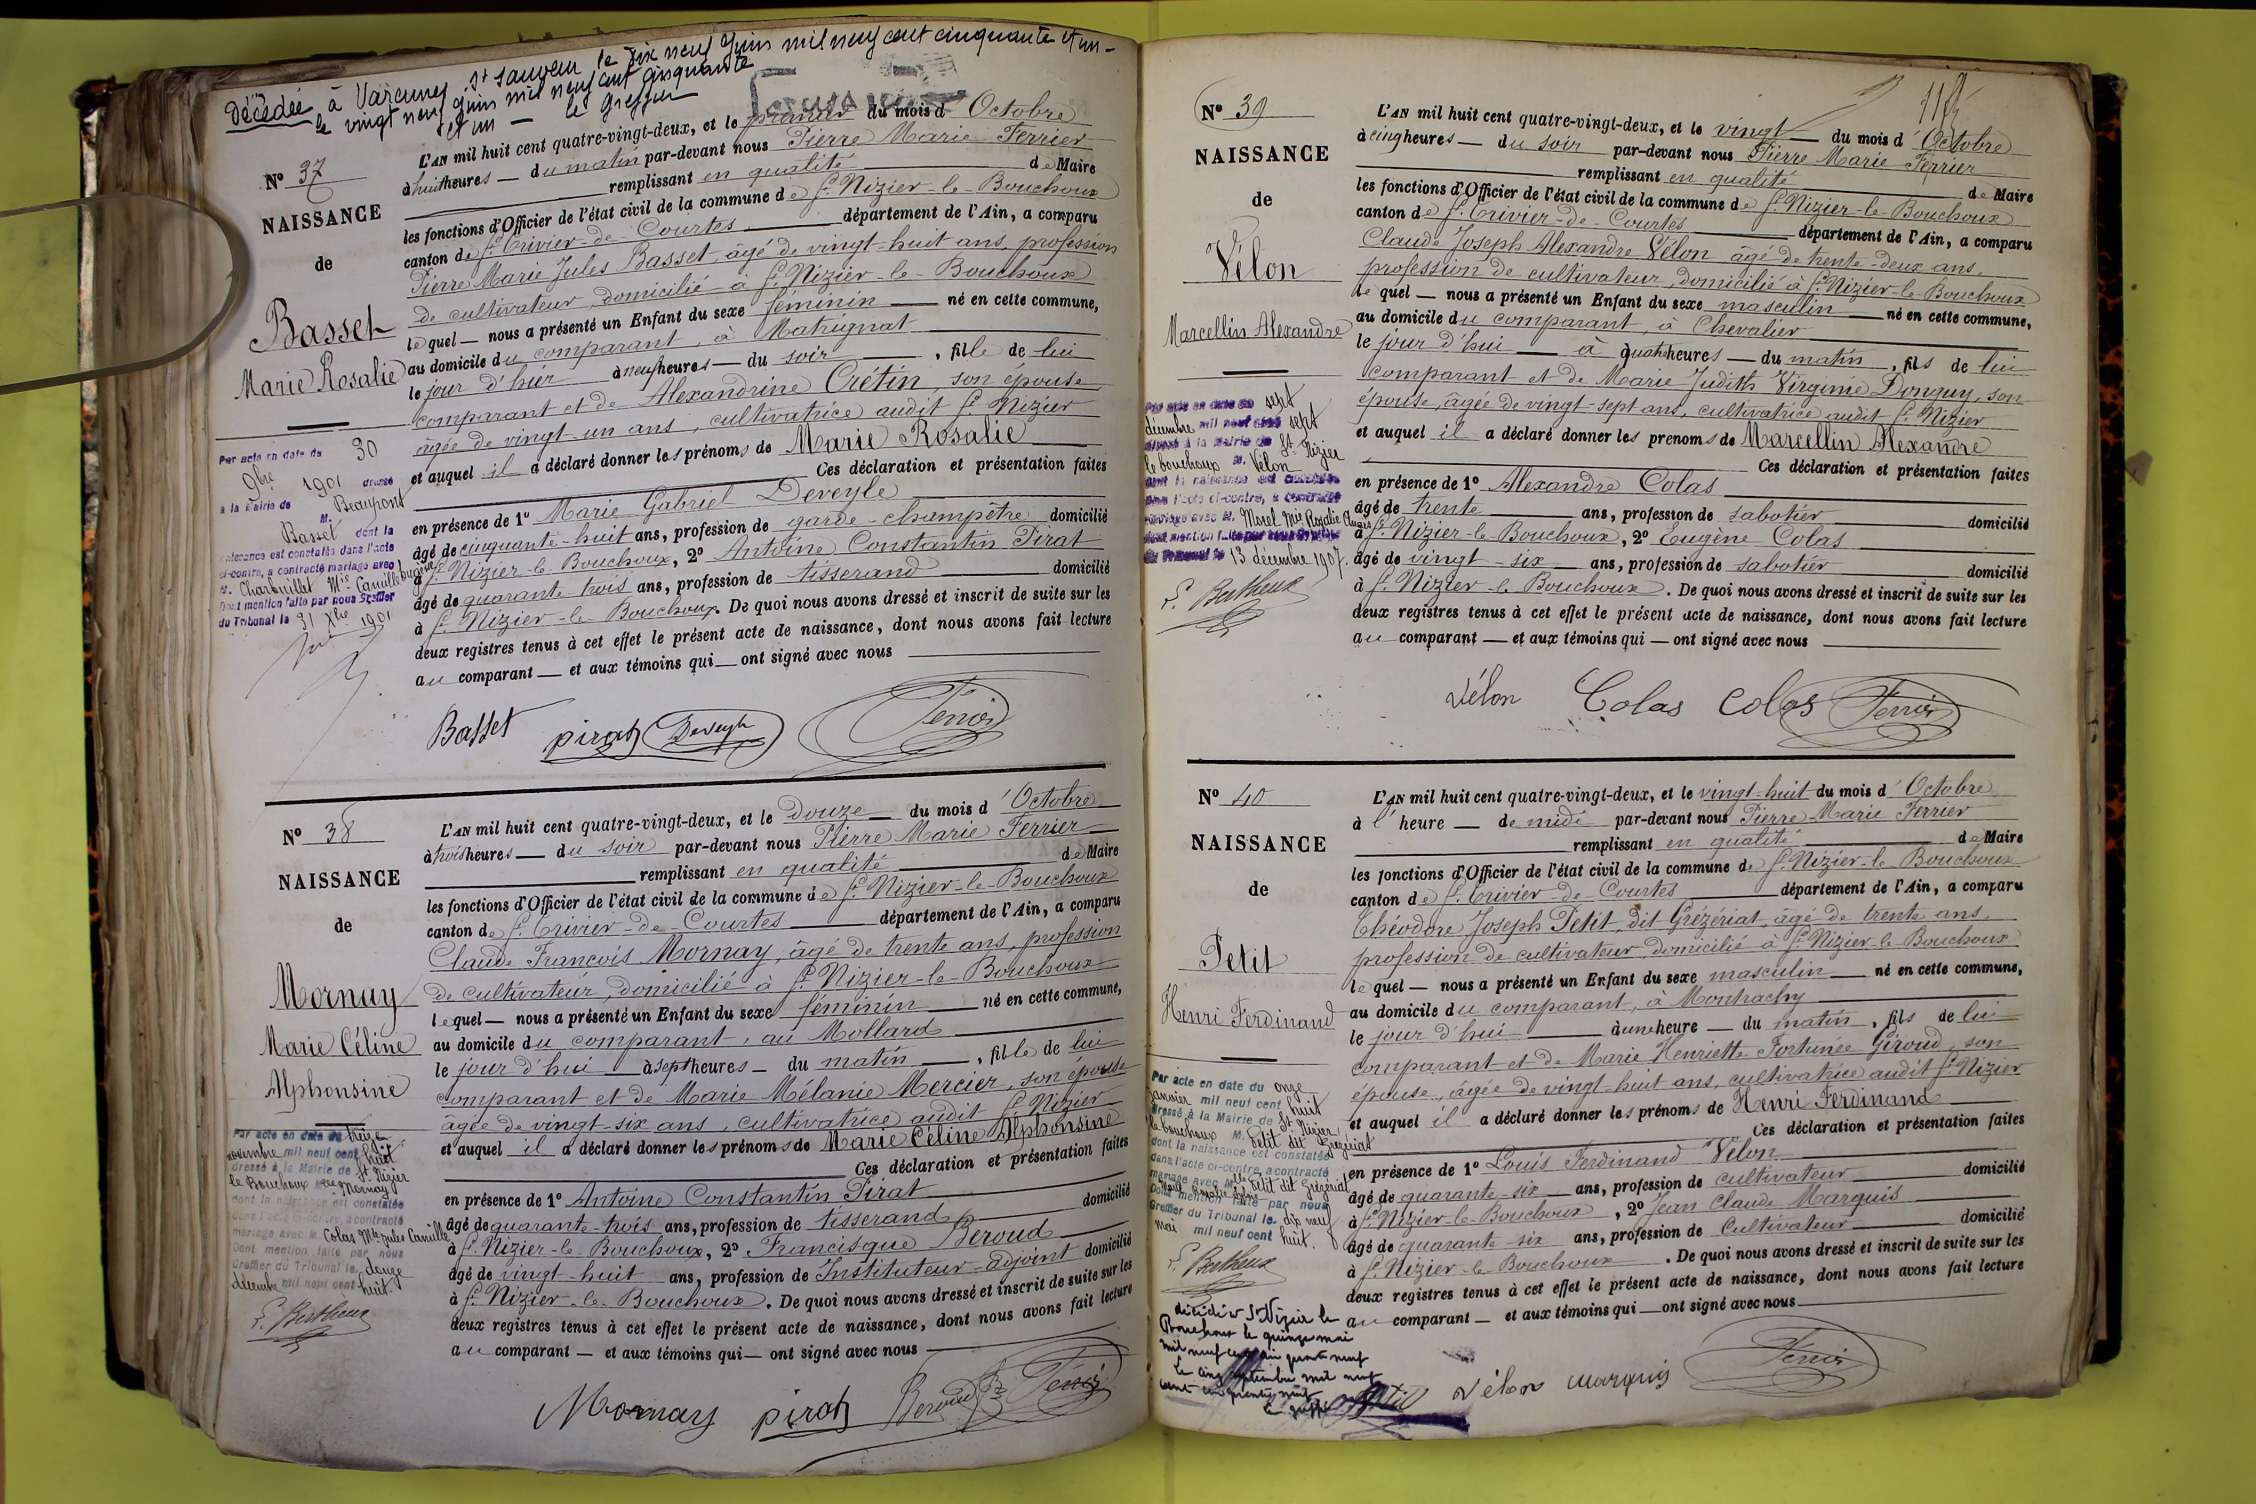 décédée à Varennes St Sauveur le dix neuf juin mil neuf cent cinquante et un -
le vingt neuf juin mil neuf cent cinquante
et un — le Greffier
N° 37
NAISSANCE
de
Basset
Marie Rosalie
Par acte en date du 30
9bre 1901 dressé
à la Mairie de Beaupont
M.
Basset dont la
naissance est constatée dans l'acte
ci-contre, a contracté mariage avec
M. Charbuillet Mie Camille Eugène
Dont mention faite par nous Greffier
du Tribunal le 31 Xbre 1901
L'AN mil huit cent quatre-vingt-deux, et le premier du mois d'Octobre
à huit heures — du matin par-devant nous Pierre Marie Ferrier
remplissant en qualité de Maire
les fonctions d'Officier de l'état civil de la commune de St Nizier-le-Bouchoux
canton de St Trivier-de-Courtes département de l'Ain, a comparu
Pierre Marie Jules Basset, âgé de vingt-huit ans, profession
de cultivateur, domicilié à St Nizier-le-Bouchoux
lequel — nous a présenté un Enfant du sexe féminin — né en cette commune,
au domicile du comparant, à Matrignat
le jour d'hier à neuf heures — du soir, fille de lui
comparant et de Alexandrine Crétin, son épouse
âgée de vingt-un ans, cultivatrice audit St Nizier
et auquel il a déclaré donner les prénoms de Marie Rosalie
Ces déclaration et présentation faites
en présence de 1° Marie Gabriel Deveyle
âgé de cinquante-huit ans, profession de garde-champêtre domicilié
à St Nizier-le-Bouchoux, 2° Antoine Constantin Pirat
âgé de quarante trois ans, profession de tisserand domicilié
à St Nizier-le-Bouchoux. De quoi nous avons dressé et inscrit de suite sur les
deux registres tenus à cet effet le présent acte de naissance, dont nous avons fait lecture
au comparant — et aux témoins qui — ont signé avec nous
Basset pirat Deveyle Ferrier
N° 38
NAISSANCE
de
Mornay
Marie Céline
Alphonsine
Par acte en date du treize
novembre mil neuf cent huit
dressé à la Mairie de St Nizier
le Bouchoux Mornay
dont la naissance est constatée
dans l'acte ci-contre, a contracté
mariage avec M. Colas Mie Jules Camille
Dont mention faite par nous
Greffier du Tribunal le douze
décembre mil neuf cent huit.
L. Berthoux
L'AN mil huit cent quatre-vingt-deux, et le douze — du mois d'Octobre
à trois heures — du soir par-devant nous Pierre Marie Ferrier
remplissant en qualité de Maire
les fonctions d'Officier de l'état civil de la commune de St Nizier-le-Bouchoux
canton de St Trivier-de-Courtes département de l'Ain, a comparu
Claude François Mornay, âgé de trente ans, profession
de cultivateur, domicilié à St Nizier-le-Bouchoux
lequel — nous a présenté un Enfant du sexe féminin — né en cette commune,
au domicile du comparant, au Mollard
le jour d'hui à sept heures — du matin —, fille de lui
comparant et de Marie Mélanie Mercier, son épouse
âgée de vingt-six ans, cultivatrice audit St Nizier
et auquel il a déclaré donner les prénoms de Marie Céline Alphonsine
Ces déclaration et présentation faites
en présence de 1° Antoine Constantin Pirat
âgé de quarante-trois ans, profession de tisserand domicilié
à St Nizier-le-Bouchoux, 2° Francisque Beroud
âgé de vingt-huit ans, profession de Instituteur-adjoint domicilié
à St Nizier-le-Bouchoux. De quoi nous avons dressé et inscrit de suite sur les
deux registres tenus à cet effet le présent acte de naissance, dont nous avons fait lecture
au comparant — et aux témoins qui — ont signé avec nous
Mornay pirat Beroud Ferrier
N° 39
NAISSANCE
de
Vélon
Marcellin Alexandre
Par acte en date du sept
décembre mil neuf cent sept
dressé à la Mairie de St Nizier
le bouchoux M. Vélon
dont la naissance est constatée
dans l'acte ci-contre, a contracté
mariage avec M. Morel Mie Rosalie
Dont mention faite par nous Greffier
du Tribunal le 13 décembre 1907.
L. Berthoux
L'AN mil huit cent quatre-vingt-deux, et le vingt — du mois d'Octobre
à cinq heures — du soir par-devant nous Pierre Marie Ferrier
remplissant en qualité de Maire
les fonctions d'Officier de l'état civil de la commune de St Nizier-le-Bouchoux
canton de St Trivier-de-Courtes département de l'Ain, a comparu
Claude Joseph Alexandre Vélon, âgé de trente-deux ans,
profession de cultivateur, domicilié à St Nizier-le-Bouchoux
lequel — nous a présenté un Enfant du sexe masculin — né en cette commune,
au domicile du comparant, à Chevalier
le jour d'hui — à quatre heures — du matin, fils de lui
comparant et de Marie Judith Virginie Donguy, son
épouse, âgée de vingt-sept ans, cultivatrice audit St Nizier
et auquel il a déclaré donner les prenoms de Marcellin Alexandre
Ces déclaration et présentation faites
en présence de 1° Alexandre Colas
âgé de trente ans, profession de sabotier domicilié
à St Nizier-le-Bouchoux, 2° Eugène Colas
âgé de vingt-six ans, profession de sabotier domicilié
à St Nizier-le-Bouchoux. De quoi nous avons dressé et inscrit de suite sur les
deux registres tenus à cet effet le présent acte de naissance, dont nous avons fait lecture
au comparant — et aux témoins qui — ont signé avec nous
Vélon Colas Colas Ferrier
N° 40
NAISSANCE
de
Petit
Henri Ferdinand
Par acte en date du onze
Janvier mil neuf cent huit
dressé à la Mairie de St Nizier
le bouchoux M. Petit dit Grézériat
dont la naissance est constatée
dans l'acte ci-contre, a contracté
mariage avec Mlle Petit dit Grézériat
Dont mention faite par nous
Greffier du Tribunal le dix neuf
mai mil neuf cent huit.
L. Berthoux
décédé à St Nizier le
Bouchoux le quinze mai
mil neuf cent cinquante neuf
Le cinq septembre mil neuf
cent cinquante neuf
le greffier
L'AN mil huit cent quatre-vingt-deux, et le vingt-huit du mois d'Octobre
à l'heure — de midi par-devant nous Pierre Marie Ferrier
remplissant en qualité de Maire
les fonctions d'Officier de l'état civil de la commune de St Nizier-le-Bouchoux
canton de St Trivier-de-Courtes département de l'Ain, a comparu
Théodore Joseph Petit, dit Grézériat, âgé de trente ans,
profession de cultivateur, domicilié à St Nizier-le-Bouchoux
lequel — nous a présenté un Enfant du sexe masculin — né en cette commune,
au domicile du comparant, à Montrachy
le jour d'hui à une heure — du matin, fils de lui
comparant et de Marie Henriette Fortunée Giroud, son
épouse, âgée de vingt-huit ans, cultivatrice audit St Nizier
et auquel il a déclaré donner les prénoms de Henri Ferdinand
Ces déclaration et présentation faites
en présence de 1° Louis Ferdinand Vélon
âgé de quarante-six ans, profession de cultivateur domicilié
à St Nizier-le-Bouchoux, 2° Jean Claude Marquis
âgé de quarante-six ans, profession de Cultivateur domicilié
à St Nizier-le-Bouchoux. De quoi nous avons dressé et inscrit de suite sur les
deux registres tenus à cet effet le présent acte de naissance, dont nous avons fait lecture
au comparant — et aux témoins qui — ont signé avec nous
Vélon marquis Ferrier